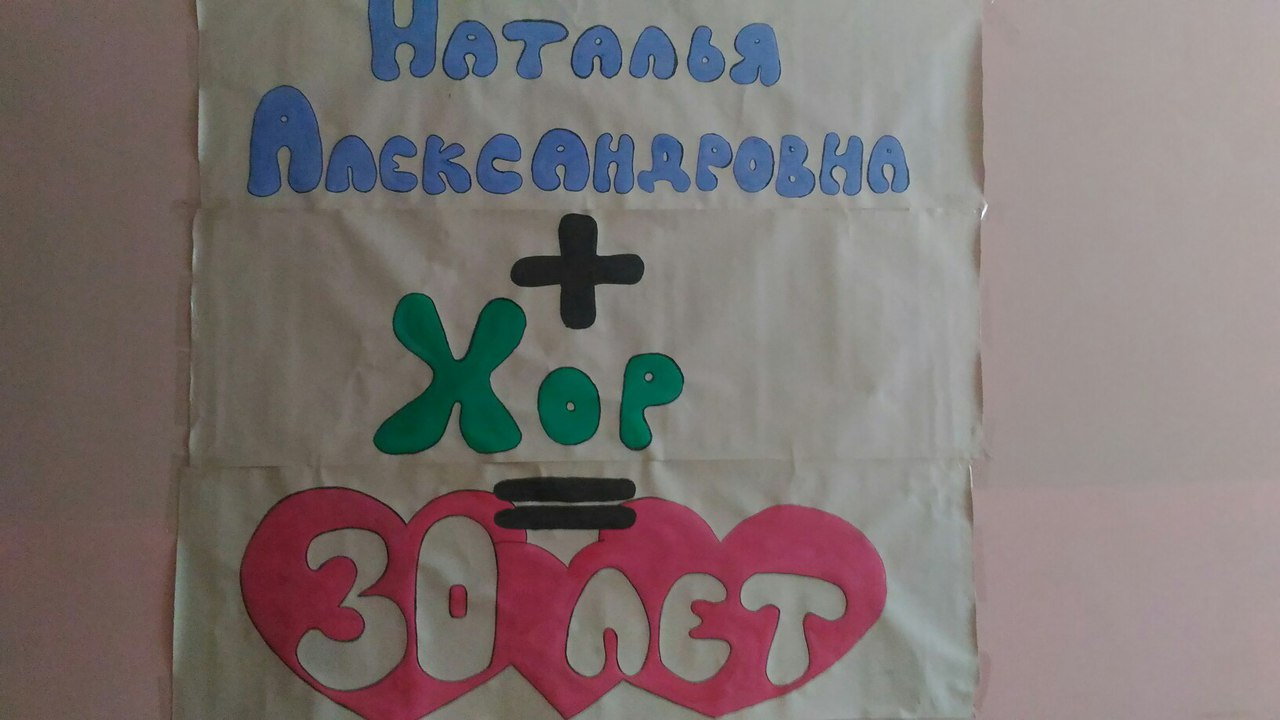 Наталья
Александровна
+
Хор
=
30 лет